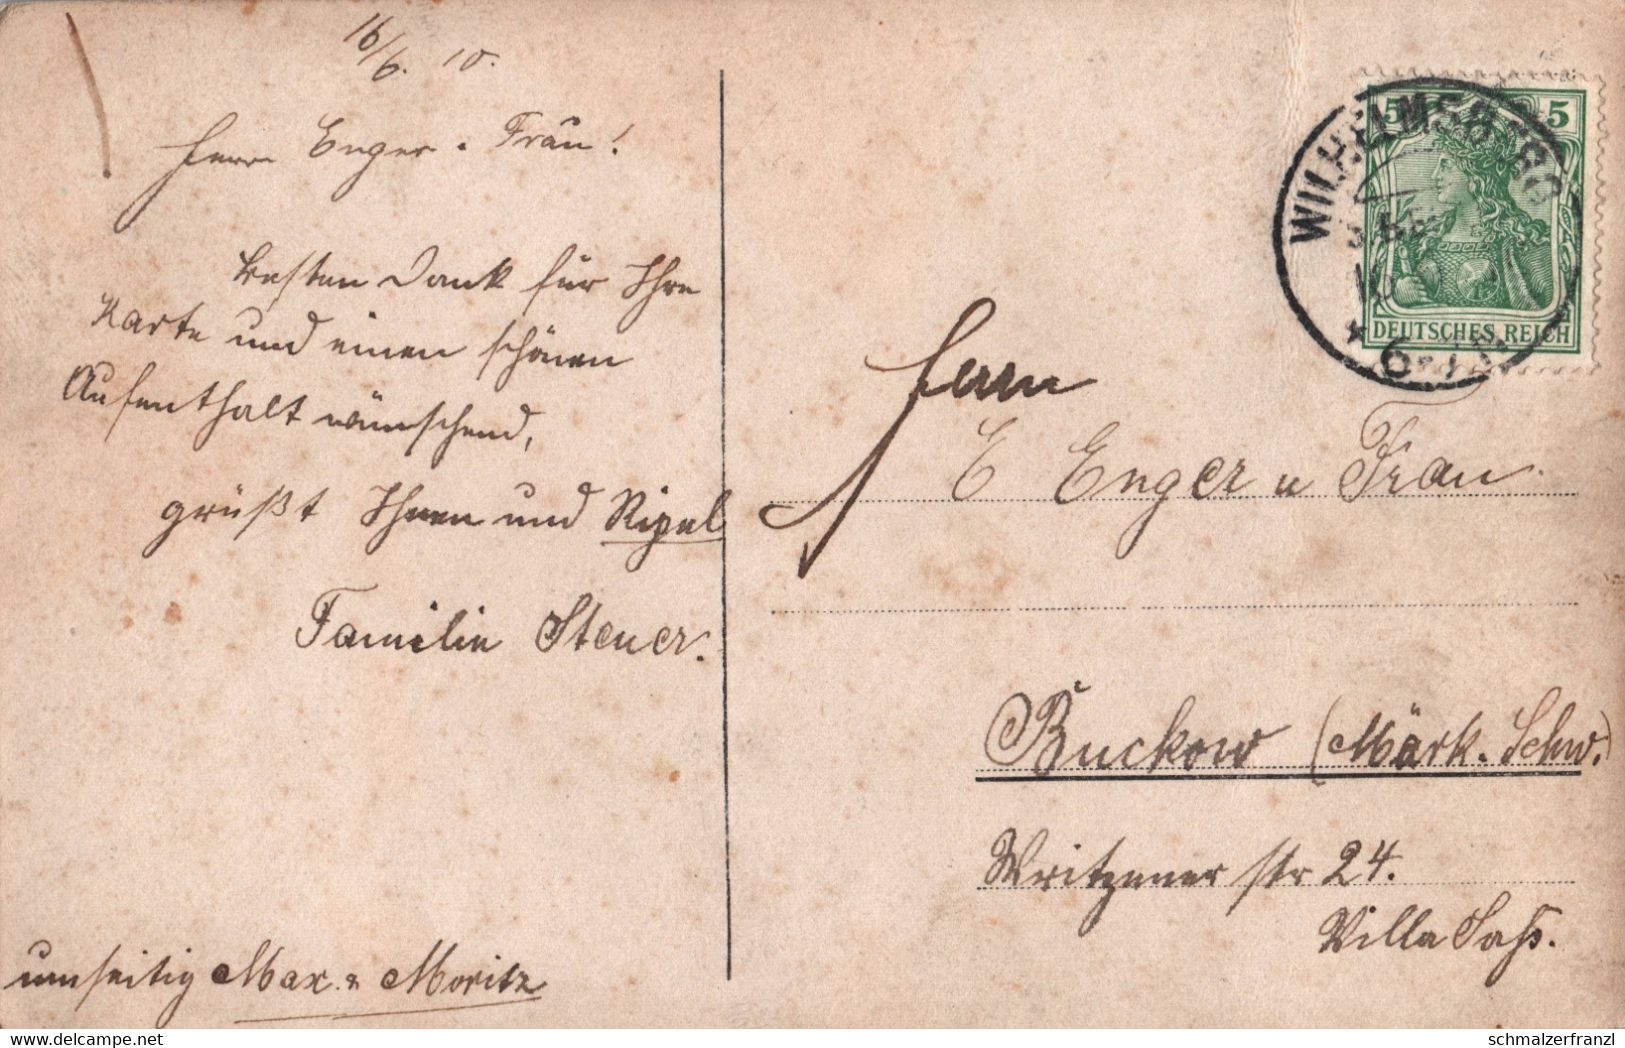 16/6. 10.
Herrn Enger u. Frau!
besten Dank für Ihre
Karte und einen schönen
Aufenthalt wünschend,
grüßt Ihnen und
Familie Steuer.
umseitig Max & Moritz
WILHELMSBURG
10
* 6-7
5 5
DEUTSCHES REICH
Herrn
E Enger u Frau
Buckow (Märk. Schw.)
Writzener str 24.
Villa Saß.
schmalzerfranzl